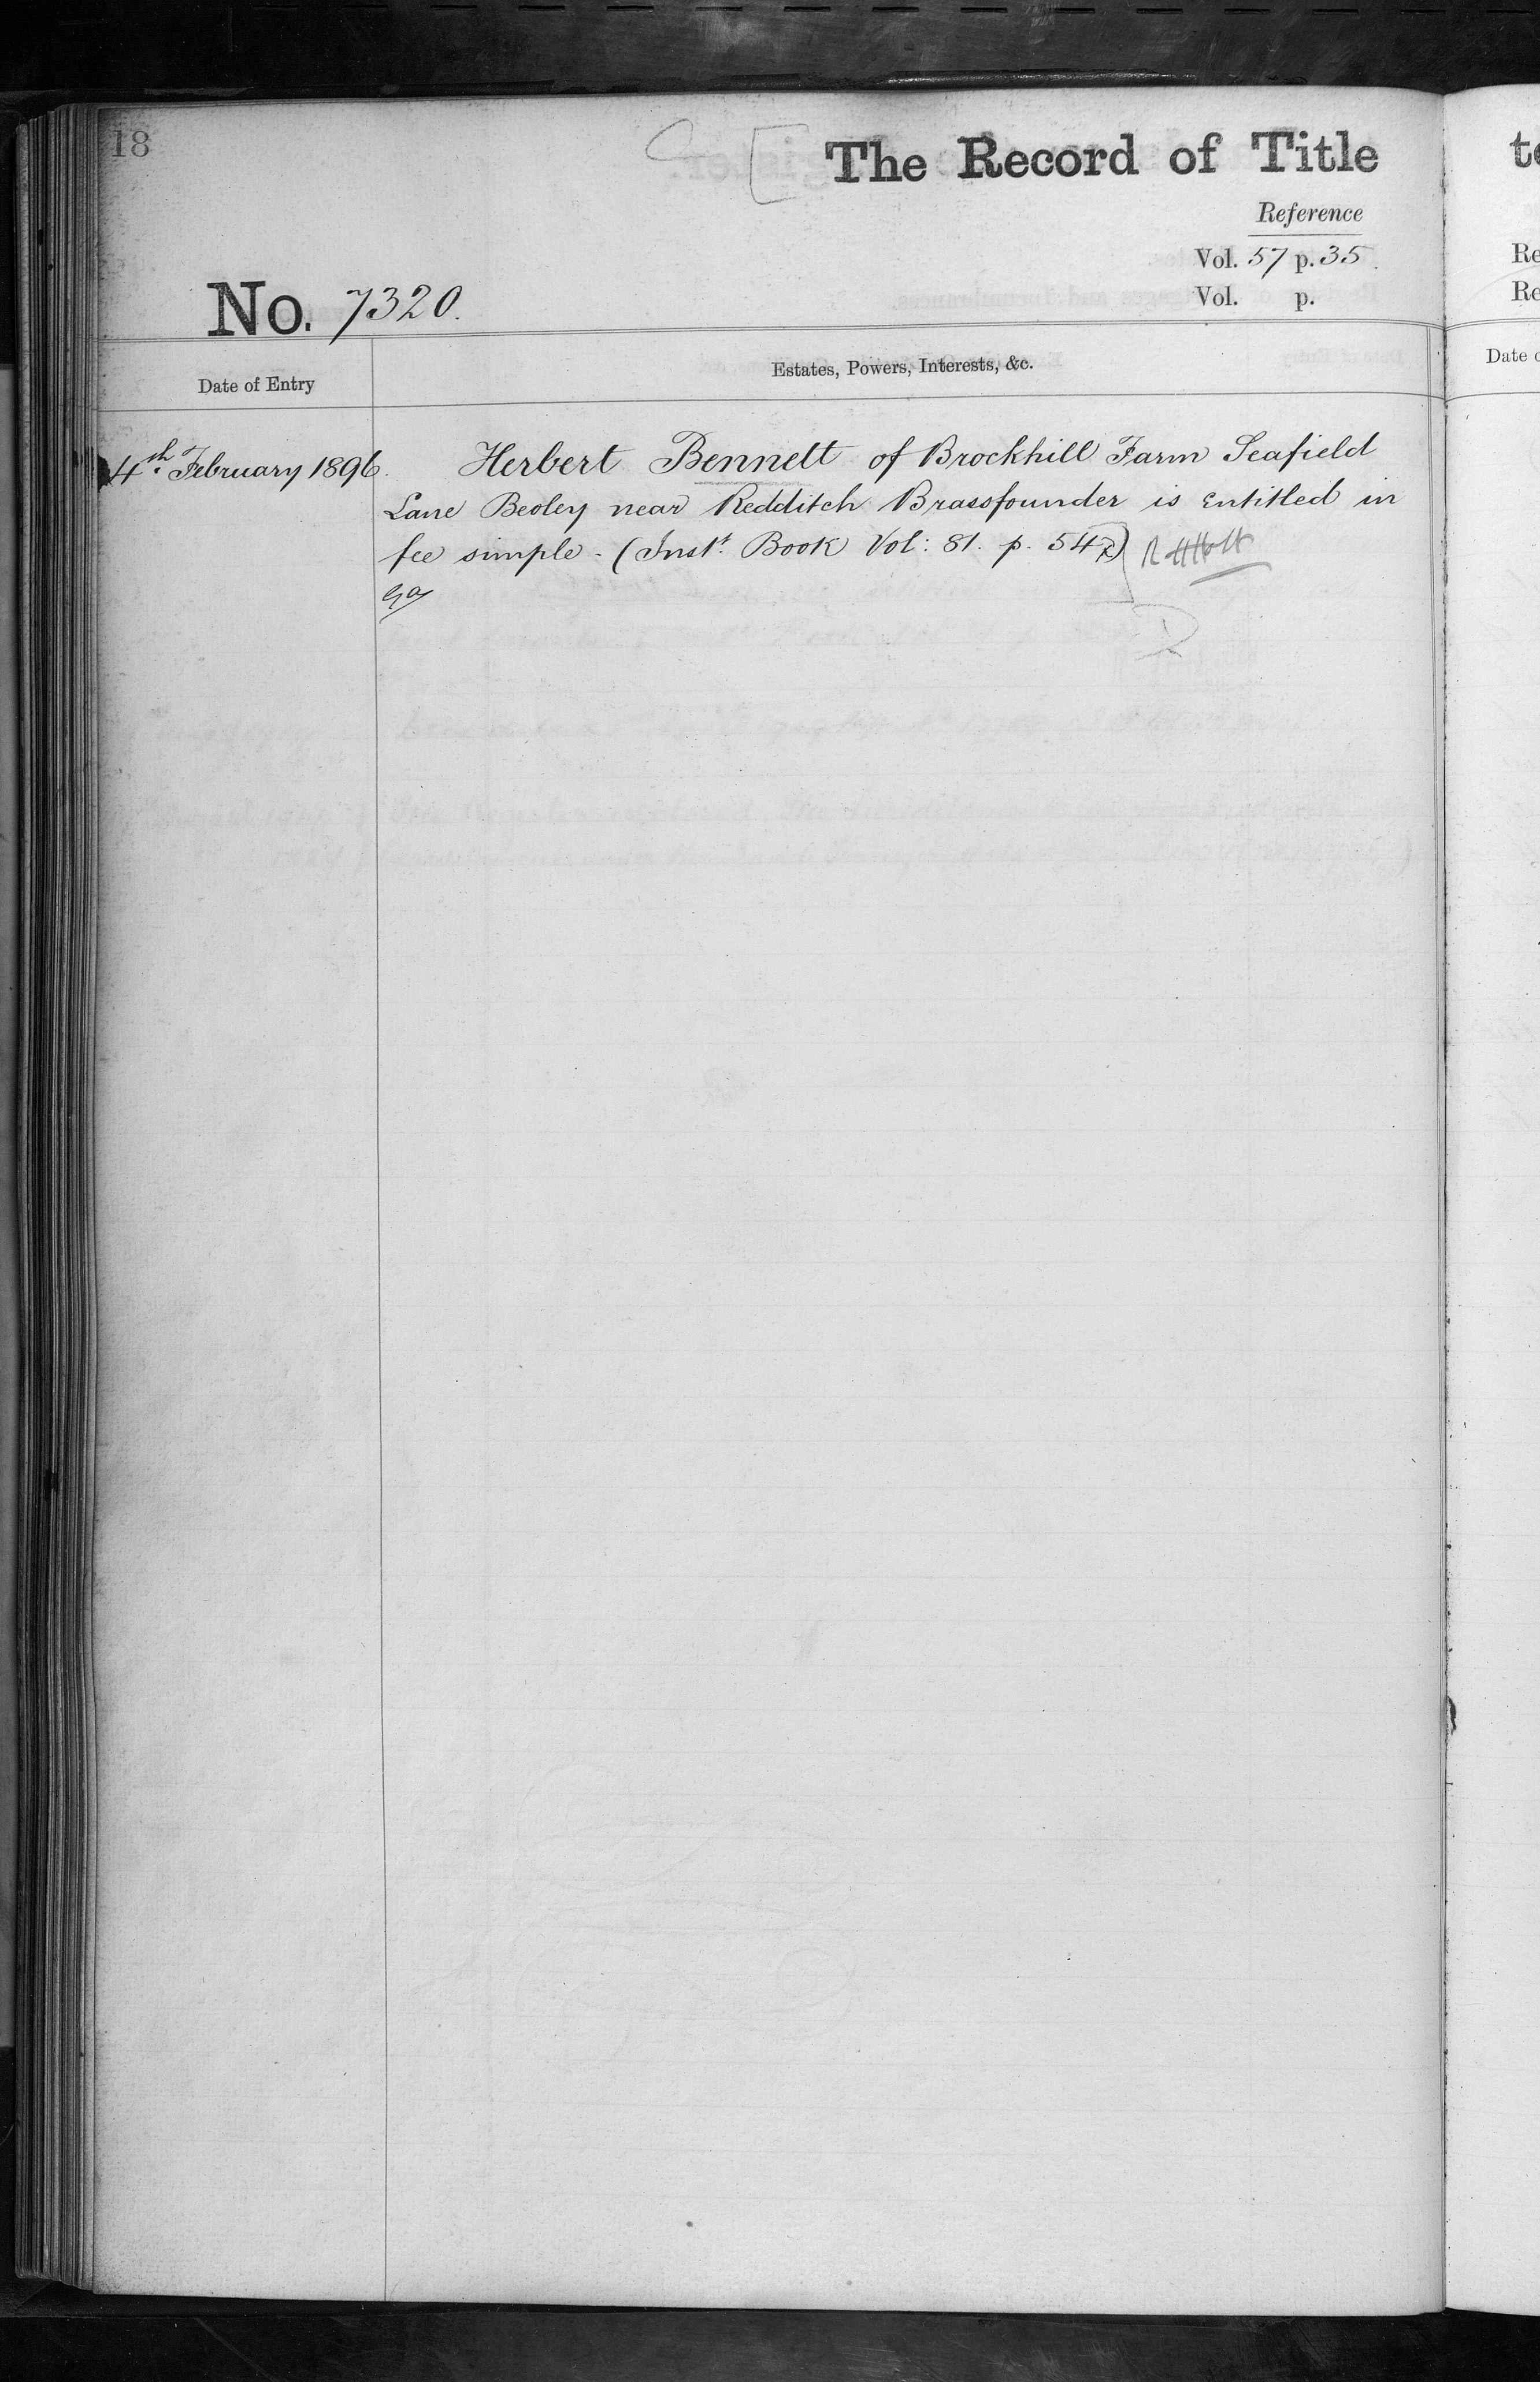 18
The Record of Title
Reference
Vol. 57 p. 35.
Vol. p.
No. 7320.
Date of Entry
Estates, Powers, Interests, &c.
4th February 1896.
Herbert Bennett of Brockhill Farm Seafield
Lane Beoley near Redditch Brassfounder is entitled in
fee simple - (Inst. Book Vol: 81. p. 54
te
Re
Re
Date o